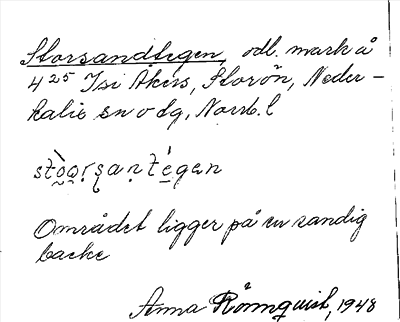 Storsandtegen, odl. mark å
4²⁵ Isi Akers, Storön, Neder-
kalix sn o dg, Norrb. l
stòǫrsantégan
Området ligger på en sandig
backe
Anna Rönnquist, 1948